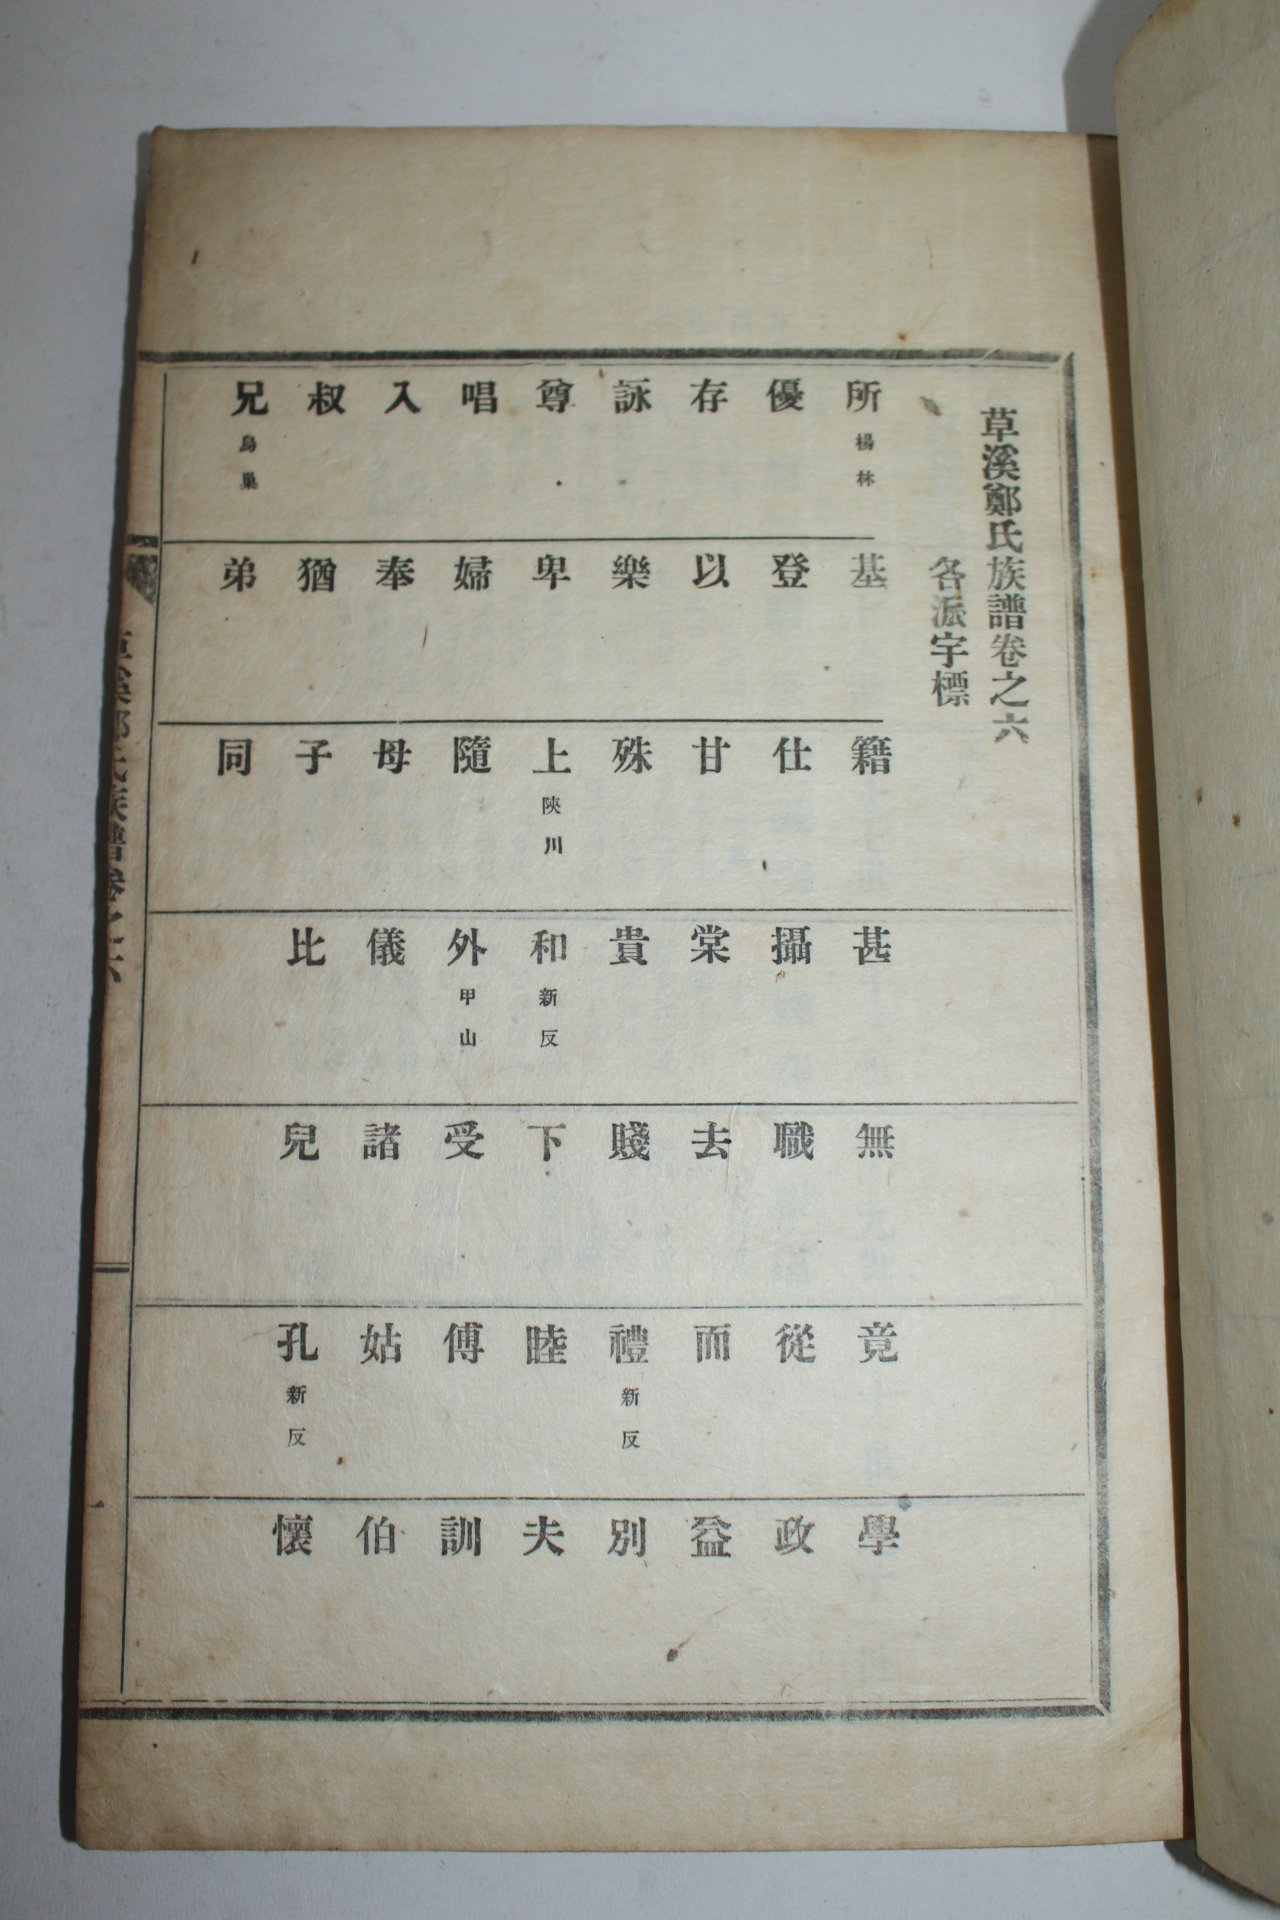 草溪鄭氏族譜卷之六
各派字標
所 楊林 基 籍 甚 無 竟 學
優 登 仕 攝 職 從 政
存 以 甘 棠 去 而 益
詠 樂 殊 貴 賤 禮 新反 別
尊 卑 上 陜川 和 新反 下 睦 夫
唱 婦 隨 外 甲山 受 傅 訓
入 奉 母 儀 諸 姑 伯
叔 猶 子 比 兒 孔 新反 懷
兄 鳥巢 弟 同
草溪鄭氏族譜卷之六
一